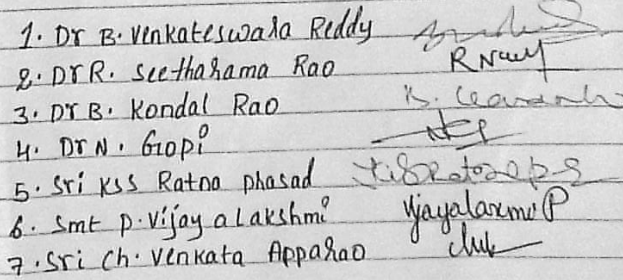 1. Dr B. Venkateswara Reddy
2. Dr R. Seetharama Rao
3. Dr B. Kondal Rao
4. Dr N. Gopi
5. Sri KSS Ratna Phasad
6. Smt P. Vijayalakshmi Vijayalaxmi P
7. Sri Ch. Venkata Apparao